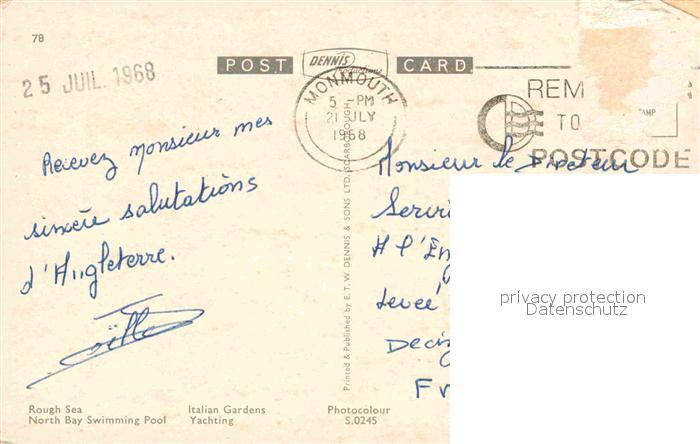 78
25 JUIL. 1968
POST DENNIS CARD
MONMOUTH
5 - PM
21 JLY
1968
REM
TO
AMP
POSTCODE
Recevez Monsieur mes
sincère salutations
d'Angleterre.
Monsieur le Directeur
Servi
A l'En
Levée
Deciz
Fr
privacy protection
Datenschutz
Printed & Published by E. T. W. DENNIS & SONS LTD., SCARBOROUGH
Rough Sea Italian Gardens Photocolour
North Bay Swimming Pool Yachting S.0245